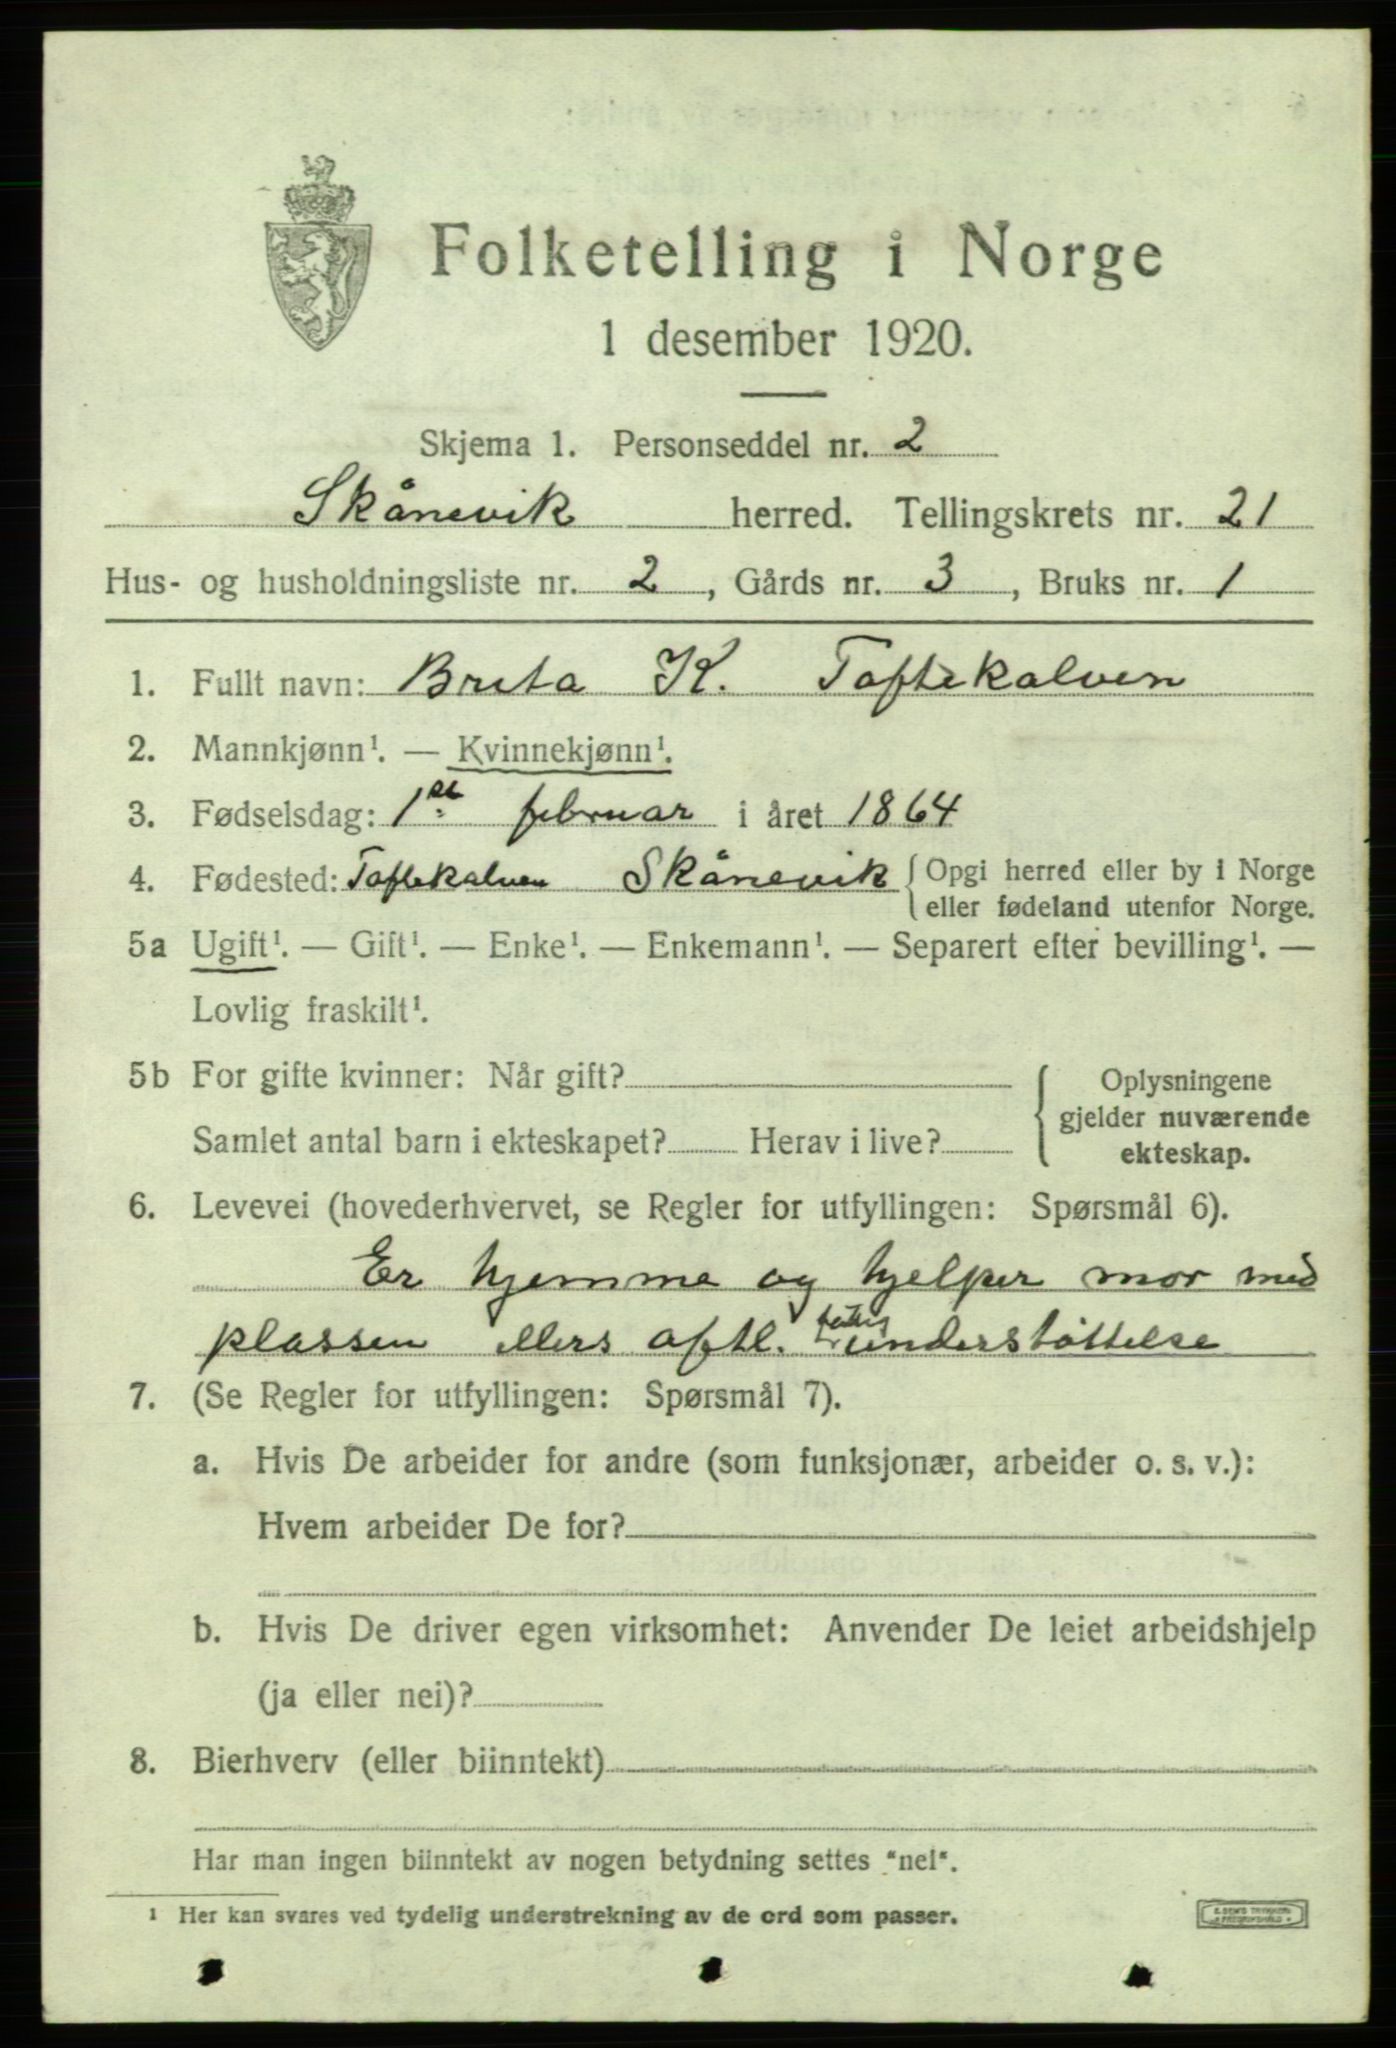 Folketelling i Norge
1 desember 1920.
Skjema 1. Personseddel nr. 2
Skånevik herred. Tellingskrets nr. 21
Hus- og husholdningsliste nr. 2, Gårds nr. 3, Bruks nr. 1
1. Fullt navn: Brita K. Toftekalven
2. Mannkjønn¹. — Kvinnekjønn¹.
3. Fødselsdag: 1st februar i året 1864
4. Fødested: Toftekalven Skånevik { Opgi herred eller by i Norge
eller fødeland utenfor Norge.
5a Ugift¹. — Gift¹. — Enke¹. — Enkemann¹. — Separert efter bevilling¹. —
Lovlig fraskilt¹.
5b For gifte kvinner: Når gift?
Samlet antal barn i ekteskapet? Herav i live?
{ Oplysningene
gjelder nuværende
ekteskap.
6. Levevei (hovederhvervet, se Regler for utfyllingen: Spørsmål 6).
Er hjemme og hjelper mor med
plassen ellers oftl. understøttelse
7. (Se Regler for utfyllingen: Spørsmål 7).
a. Hvis De arbeider for andre (som funksjonær, arbeider o. s. v.):
Hvem arbeider De for?
b. Hvis De driver egen virksomhet: Anvender De leiet arbeidshjelp
(ja eller nei)?
8. Bierhverv (eller biinntekt)
Har man ingen biinntekt av nogen betydning settes "nei".
¹ Her kan svares ved tydelig understrekning av de ord som passer.